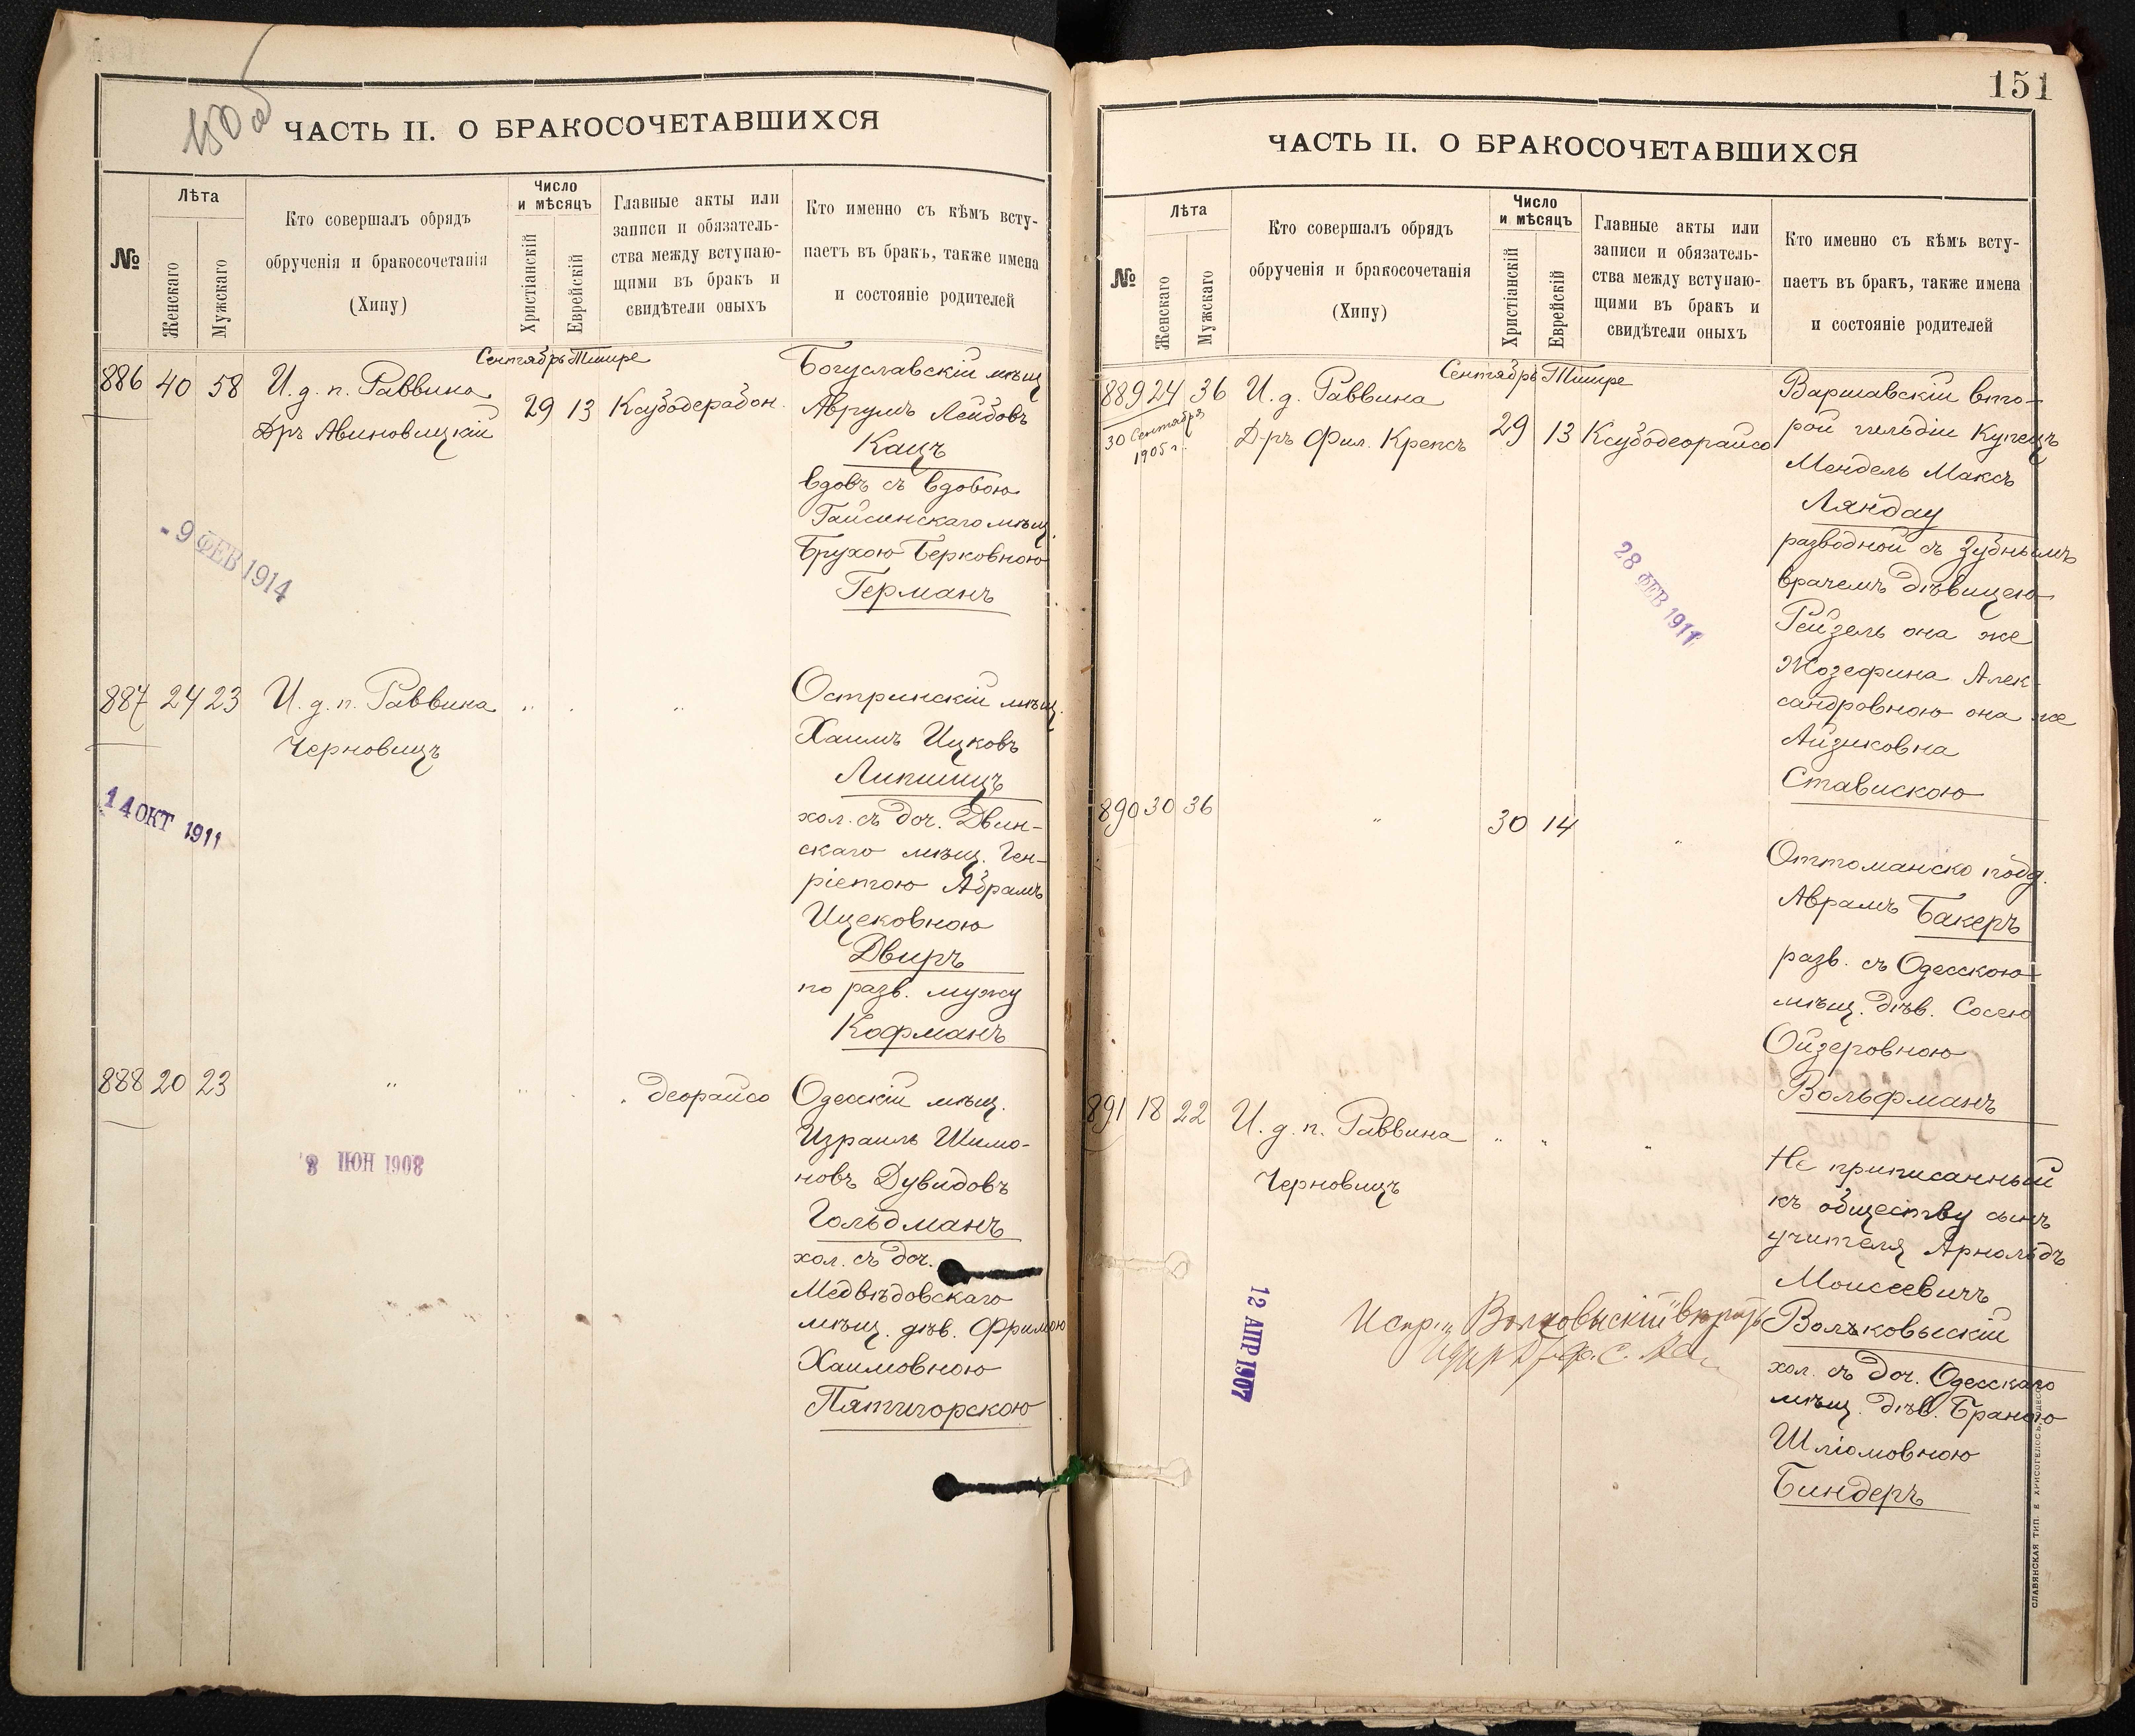 150 об
ЧАСТЬ II. О БРАКОСОЧЕТАВШИХСЯ
№
Лѣта
Женскаго
Мужскаго
Кто совершалъ обрядъ
обрученія и бракосочетанія
(Хипу)
Число
и мѣсяцъ
Христіанскій
Еврейскій
Главные акты или
записи и обязатель-
ства между вступаю-
щими въ бракъ и
свидѣтели оныхъ
Кто именно съ кѣмъ всту-
паетъ въ бракъ, также имена
и состояніе родителей
Сентябрь Тишре
886 40 58
И. д. п. Раввина
Дръ Авиновицкій
29 13
Ксубодерабон.
Богуславскій мѣщ
Аврумъ Лейбовъ
Кацъ
вдовъ съ вдовою
Гайсинскаго мѣщ.
Брухою Берковною
Германъ
- 9 ФЕВ 1914
887 24 23
И. д. п. Раввина
Черновицъ
" " "
Остринскій мѣщ.
Хаимъ Ицковъ
Липшицъ
хол. съ доч. Двин-
скаго мѣщ. Ген-
ріетою Абрамъ
Ицековною
Двиръ
по разв. мужу
Кофманъ
14 ОКТ 1911
888 20 23
" " "
" деорайсо
Одесскій мѣщ.
Израиль Шимо-
новъ Дувидовъ
Гольдманъ
хол. съ доч.
Медвѣдовскаго
мѣщ. дѣв. Фримою
Хаимовною
Пятигорскою
8 ІЮН 1908
151
ЧАСТЬ II. О БРАКОСОЧЕТАВШИХСЯ
№
Лѣта
Женскаго
Мужскаго
Кто совершалъ обрядъ
обрученія и бракосочетанія
(Хипу)
Число
и мѣсяцъ
Христіанскій
Еврейскій
Главные акты или
записи и обязатель-
ства между вступаю-
щими въ бракъ и
свидѣтели оныхъ
Кто именно съ кѣмъ всту-
паетъ въ бракъ, также имена
и состояніе родителей
Сентябрь Тишре
889 24 36
30 Сентября
1905 г.
И. д. Раввина
Д-ръ Фил. Крепсъ
29 13
Ксубодеорайсо
Варшавскій вто-
рой гильдіи Купецъ
Мендель Максъ
Ляндау
разводной съ Зубнымъ
врачемъ дѣвицею
Рейзель она же
Жозефина Алек-
сандровною она же
Айзиковна
Ставискою
28 ФЕВ 1911
890 30 36
"
30 14
"
Оттоманско подд.
Аврамъ Бакеръ
разв. съ Одесскою
мѣщ. дѣв. Сосею
Ойзеровною
Вольфманъ
891 18 22
И. д. п. Раввина
Черновицъ
" " "
Не приписанный
къ обществу сынъ
учителя Арнольдъ
Моисеевичъ
Волъковыскій
хол. съ доч. Одесскаго
мѣщ. дѣв. Браною
Шліомовною
Биндеръ
12 АПР 1907
СЛАВЯНСКАЯ ТИП. Е. ХРИСОГЕЛОСЪ, ОДЕССА